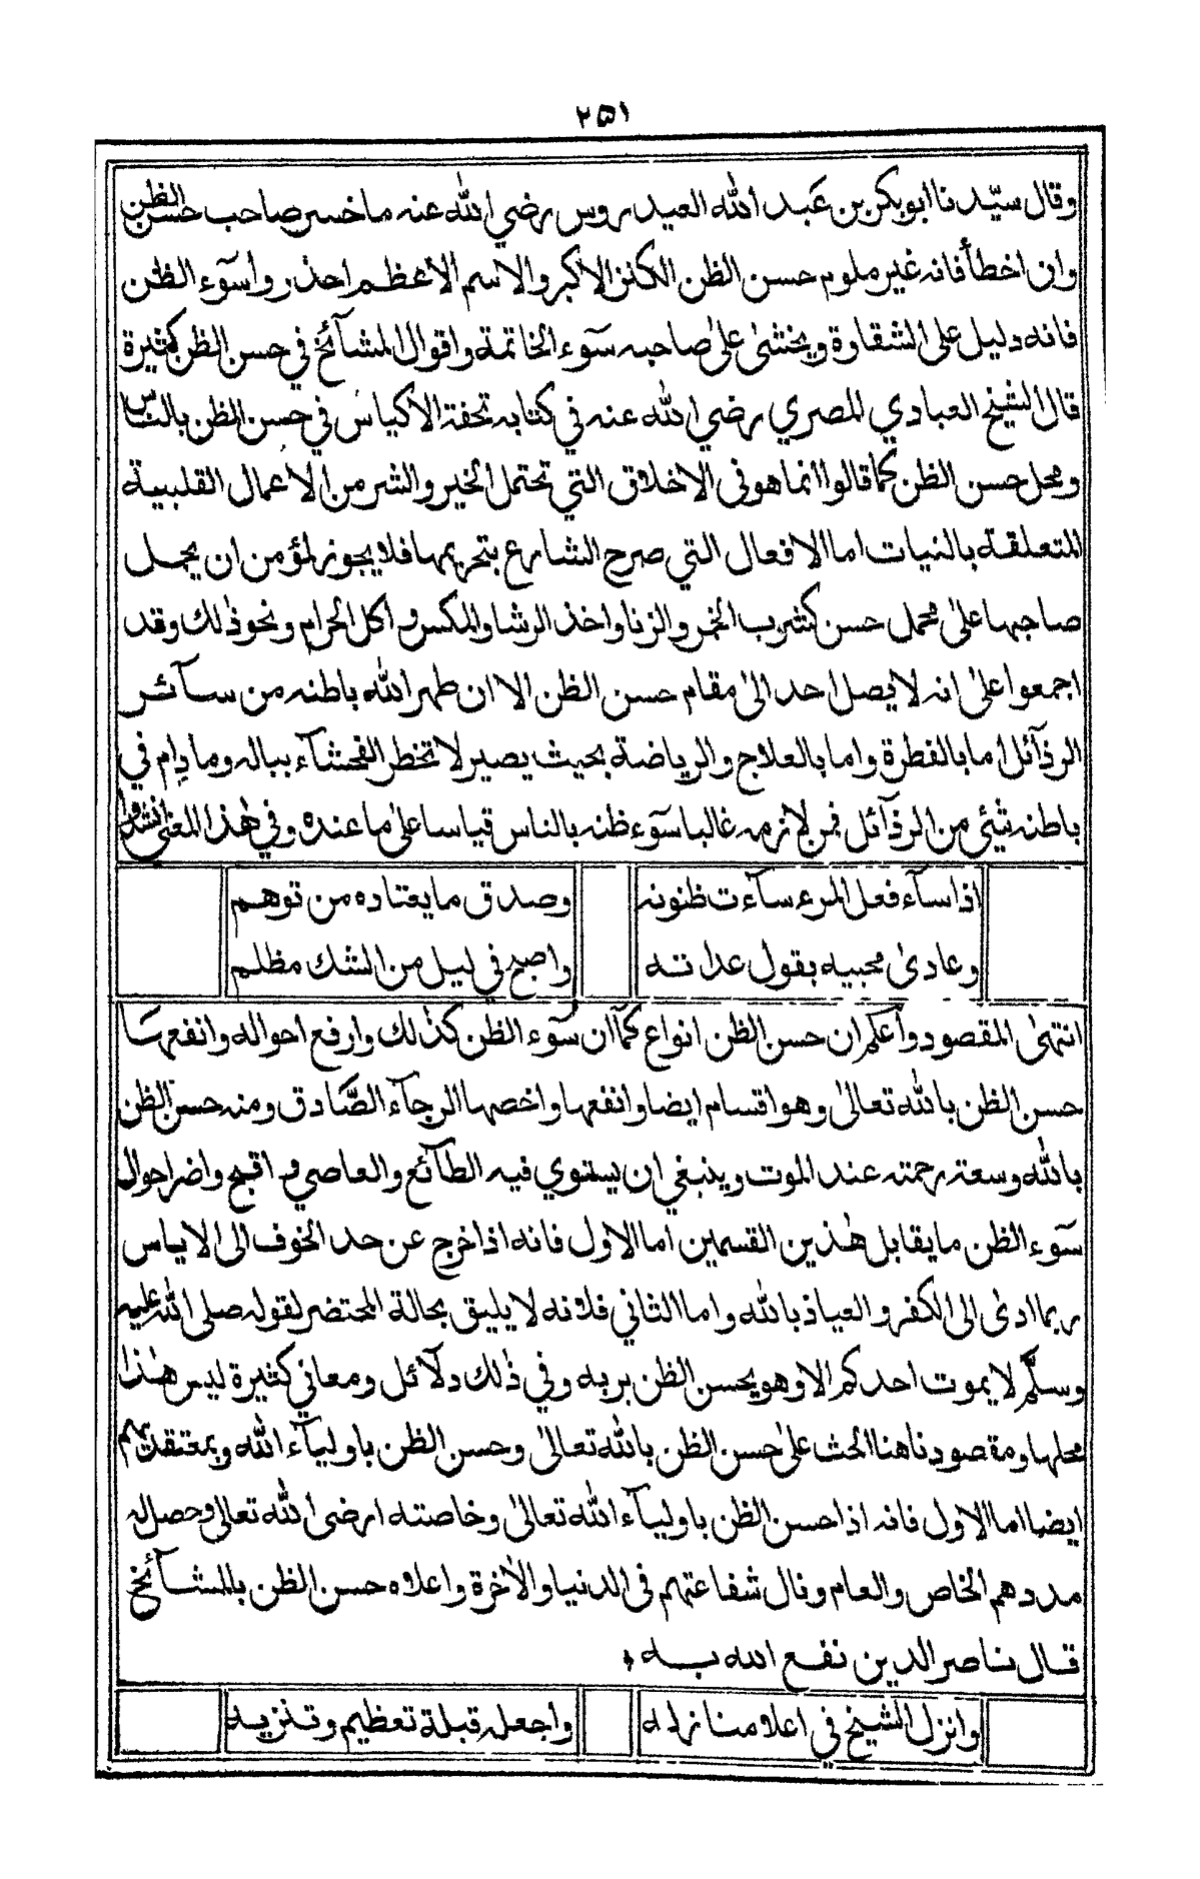 ٢٥١
وقال سيّدنا ابو بكر بن عَبد الله العيدروس رضي الله عنه ما خسر صاحب حسن الظن
وان اخطأ فانه غير ملوم حسن الظن الكنز الاكبر والاسم الاعظم احذروا سَوء الظن
فانه دليل على الشقاوة ويخشىٰ علىٰ صاحبه سَوء الخاتمة واقوال المشآئخ في حسن الظن كثيرة
قال الشيخ العبادي المصري رضي الله عنه في كتابه تحفة الاكياس في حسن الظن بالناس
ومحل حسن الظن كما قالوا انما هو فى الاخلاق التي تحتمل الخير والشر من الاعمال القلبية
المتعلقة بالنيات اما الافعال التي صرح الشارع بتحريمها فلا يجوز لمؤمن ان يحمل
صاحبها علىٰ محمل حسن كشرب الخمر والزنا واخذ الرشا والمكس و اكل الحرام ونحو ذٰلك وقد
اجمعوا علىٰ انه لا يصل احد الىٰ مقام حسن الظن الا ان طهر الله باطنه من سآئر
الرذآئل اما بالفطرة واما بالعلاج والرياضة بحيث يصير لا تخطر الفحشآء بباله وما دام في
باطنه شئي من الرذآئل فمن لازمه غالبا سَوء ظنه بالناس قياسا علىٰ ما عنده وفي هٰذا المعنىٰ انشدوا
اذا سآء فعل المرء سآءت ظنونه وصدق ما يعتاده من توهم
وعادىٰ محبيه بقول عداته واصبح في ليل من الشك مظلم
انتهىٰ المقصود وأعلم ان حسن الظن انواع كمآ ان سَوء الظن كذٰلك وارفع احواله وانفعها
حسن الظن بالله تعالىٰ وهو اقسام ايضا وانفعها واخصها الرجآء الصَّادق ومنه حسن الظن
بالله وسعة رحمته عند الموت وينبغي ان يستوي فيه الطآئع والعاصي و اقبح واضر احوال
سَوء الظن ما يقابل هٰذين القسمين اما الاول فانه اذا خرج عن حد الخوف الى الاياس
ربما ادىٰ الى الكفر والعياذ بالله واما الثاني فلانه لا يليق بحالة المحتضر لقوله صلى الله عليه
وسلَّم لا يموت احدكم الا وهو يحسن الظن بربه وفي ذٰلك دلآئل ومعاني كثيرة ليس هٰذا
محلها ومقصودنا هنا الحث علىٰ حسن الظن بالله تعالىٰ وحسن الظن باوليآء الله وبمعتقديهم
ايضا اما الاول فانه اذا حسن الظن باوليآء الله تعالىٰ وخاصته ارضى الله تعالى وحصل له
مددهم الخاص والعام ونال شفاعتهم فى الدنيا والاٰخرة واعلاه حسن الظن بالمشآئخ
قال ناصر الدين نفع الله به
وانزل الشيخ في اعلا منازله واجعله قبلة تعظيم وتنزيه